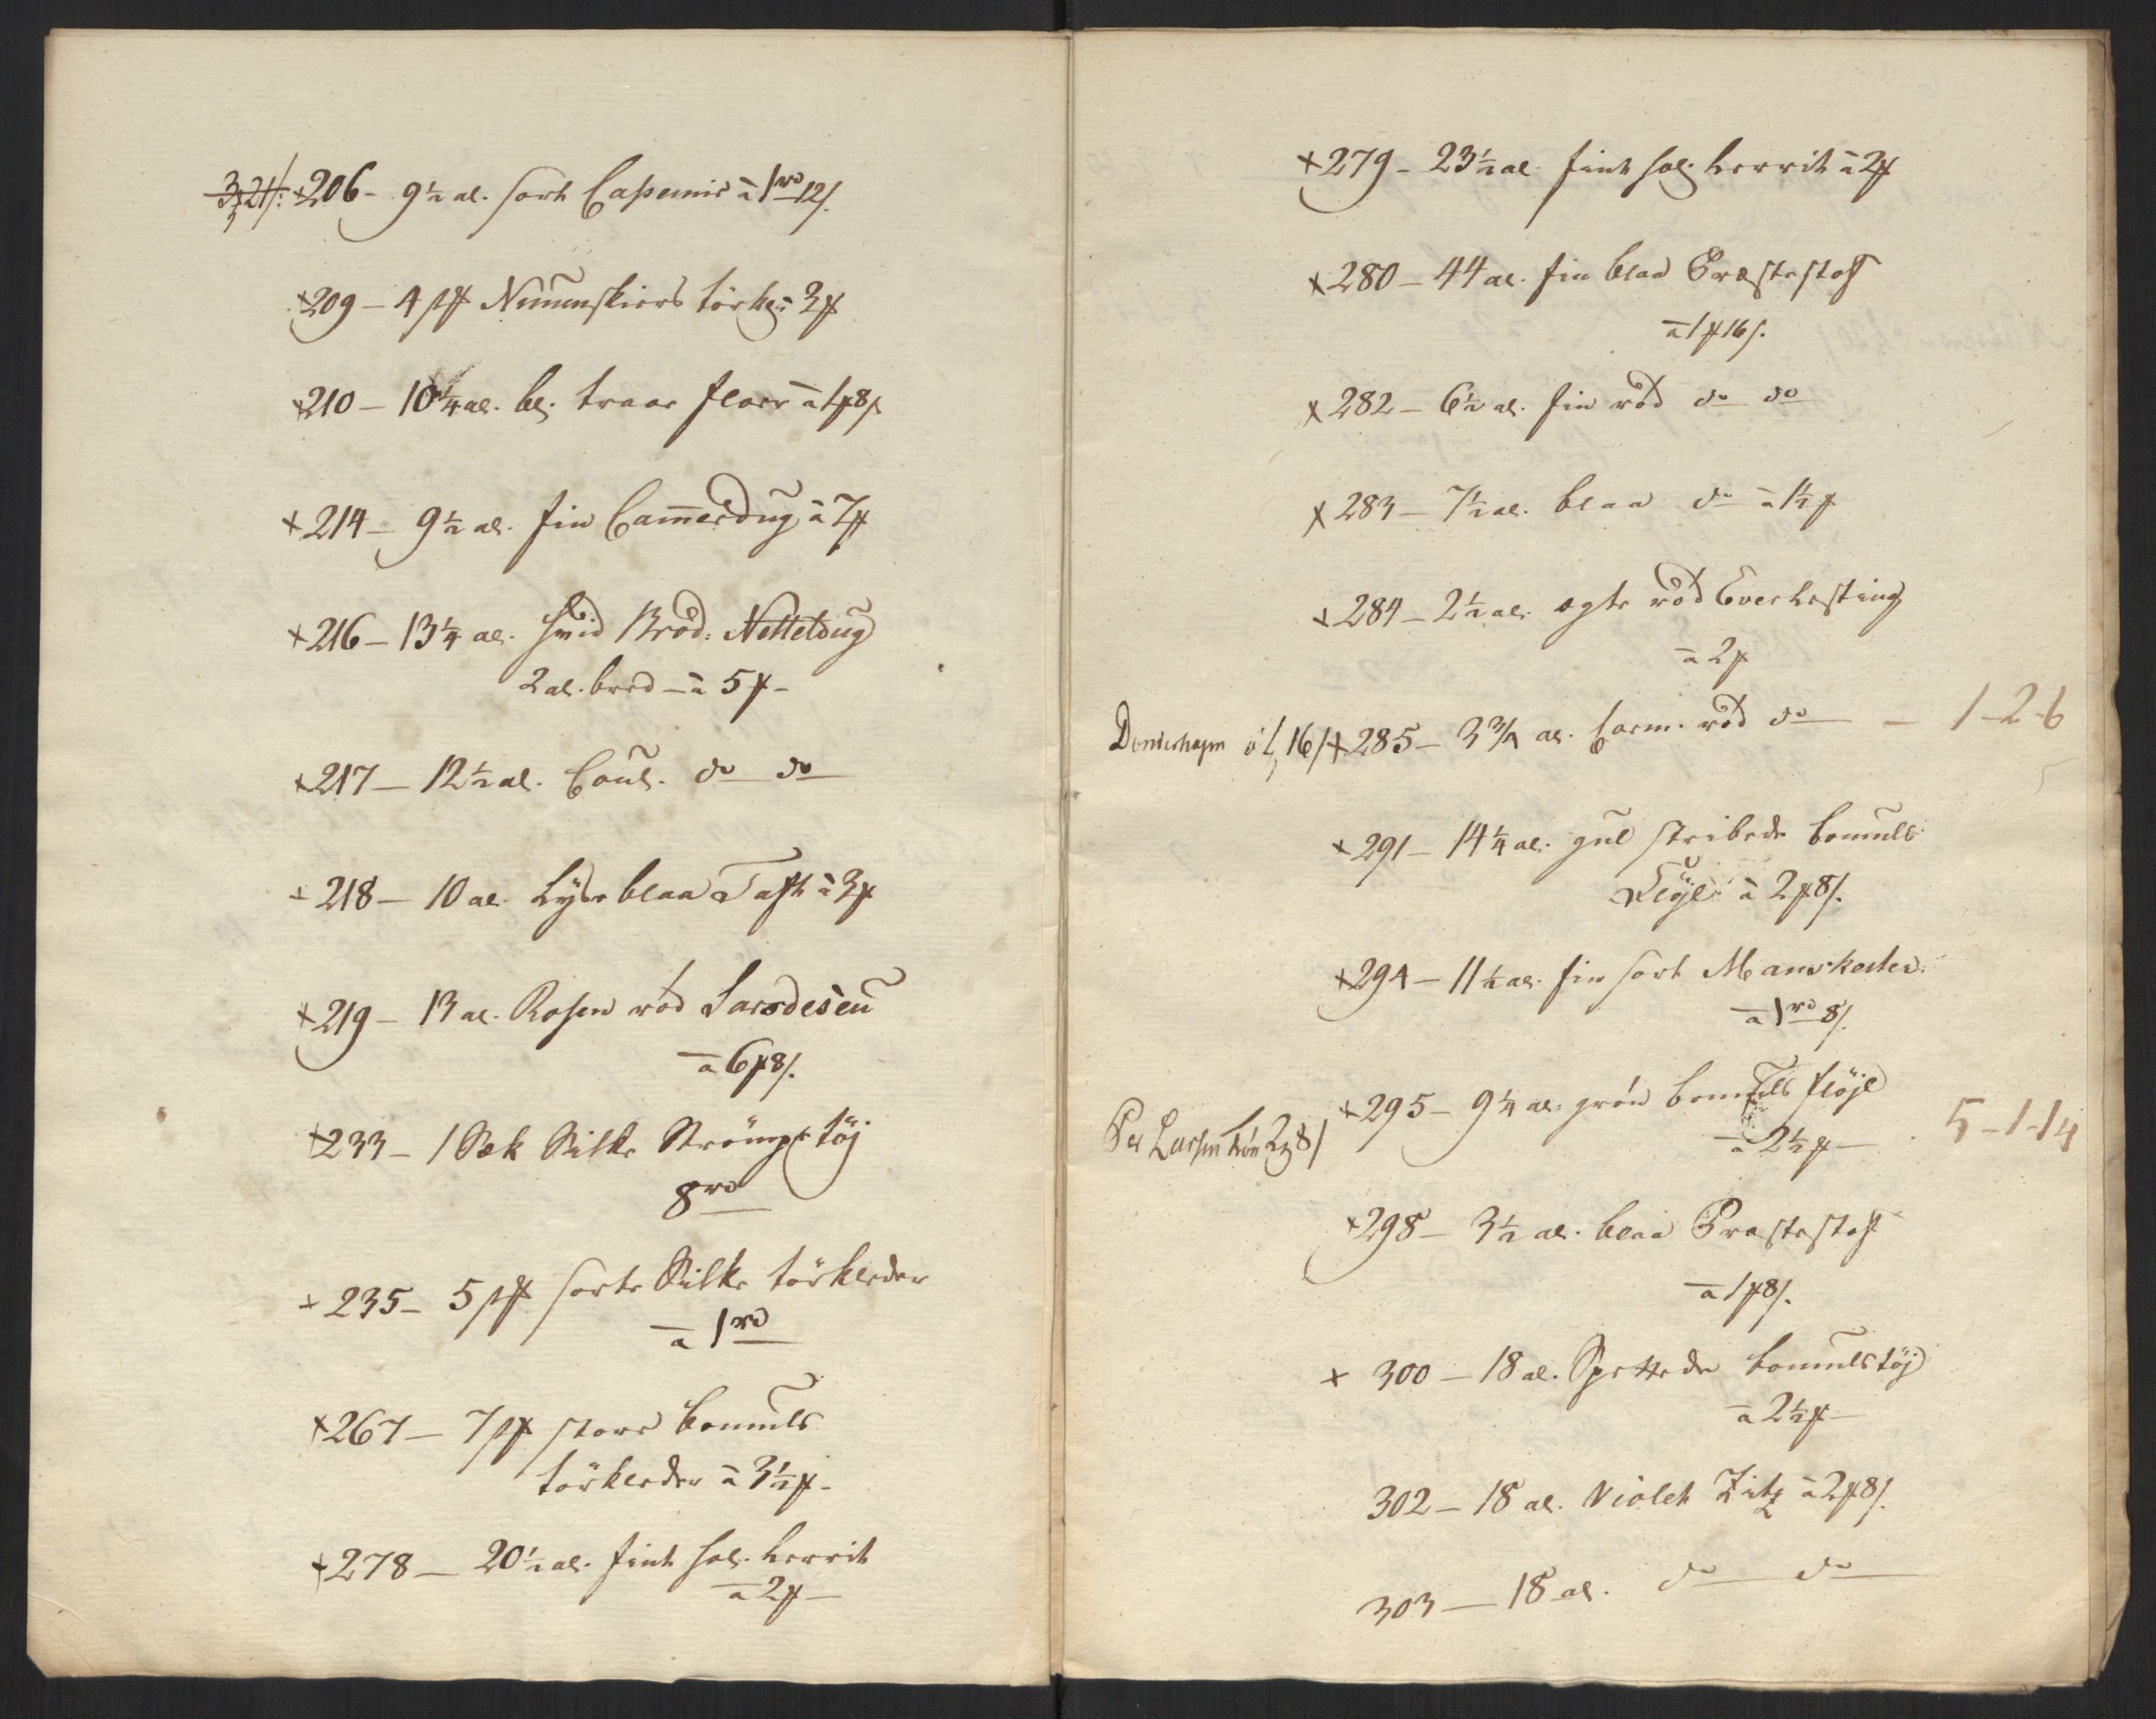 +206 - 9½ al. sort Casemir à 1rd 12s.
+209 - 4 st Nunnenskiers törkl. à 3
+210 - 10¼ al. bl. traae floer à 1 8s.
+214 - 9½ al. fin Camerdug à 7
+216 - 13¼ al. hvid Brod: Netteldug
2 al. bred - à 5 -
+217 - 12½ al. Coul. do do
+218 - 10 al. Lyse blaa Taft à 3
+219 - 13 al. Rosen röd Sarsdeseu
à 6 8s.
+233 - 1 Sök Silke Strömpe töj
8rd
+235 - 5 st sorte Silke törkleder
à 1rd
+267 - 7 st store bomuls
törkleder à 3½ -
+278 - 20½ al. fint hol. Lerrit
à 2 -
+279 - 23½ al. fint hol. Lerrit à 2
+280 - 44 al. fin blaa Præstestof
à 1 16s.
+282 - 6½ al. fin röd do do
+283 - 7½ al. blaa do à 1½
+284 - 2½ al. ægte röd Everlesting
à 2
16s +285 - 3¾ al. Carm. röd do - 1-2-6
+291 - 14¼ al. gul stribede bomuls
Flöjel à 2 8s.
+294 - 11½ al. fin sort Manskester
à 1rd 8s.
+295 - 9¼ al. grön bomuls flöjel
Per Larsen 2 8s à 2½ - 5-1-14
+298 - 3½ al. blaa Præstestof
à 1 8s.
+ 300 - 18 al. Spettede bomulstöj
à 2½ -
302 - 18 al. Violet Zitz à 2 8s.
303 - 18 al. do do